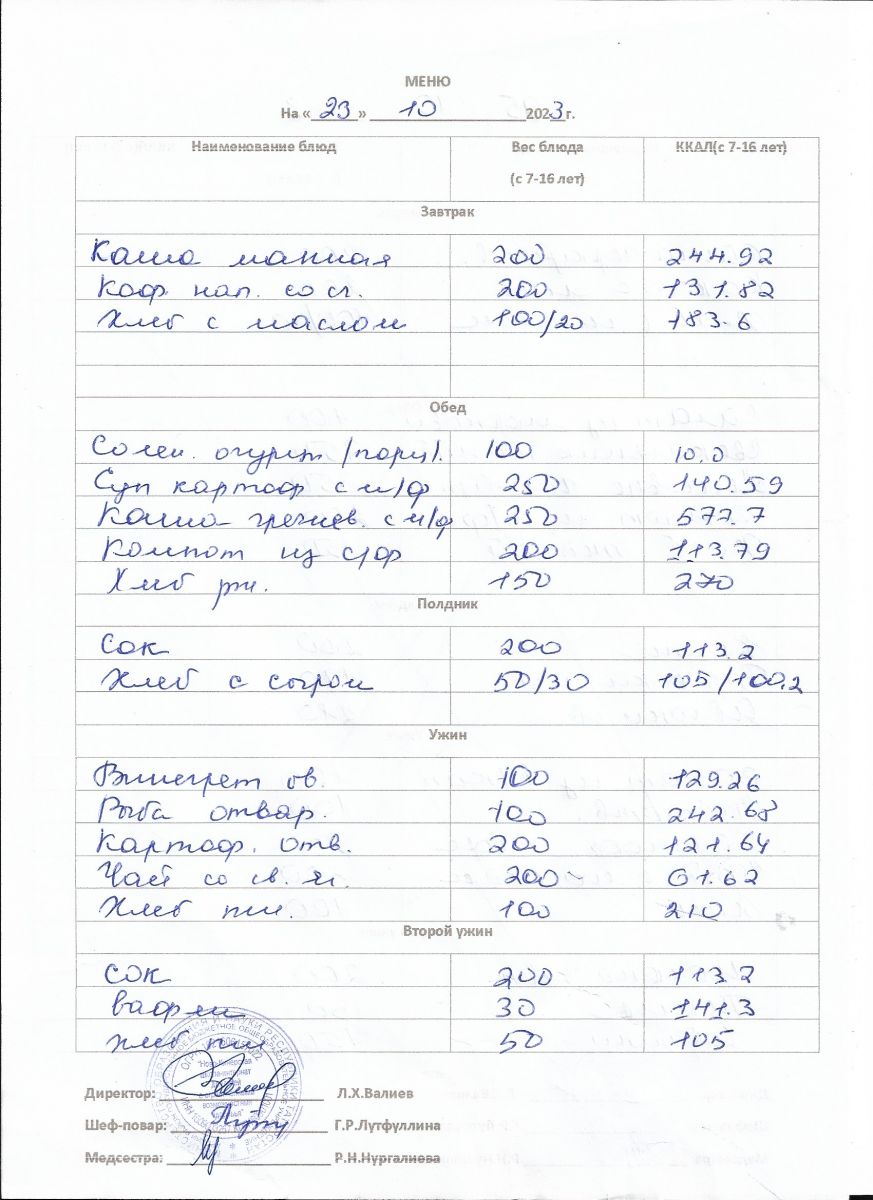 МЕНЮ
На «23» 10 2023г.
Наименование блюд Вес блюда (с 7-16 лет) ККАЛ(с 7-16 лет)
Завтрак
Каша манная 200 244.92
Коф нап. со сг. 200 131.82
Хлеб с маслом 100/20 183.6
Обед
Солен. огурцы /порц/. 100 10.0
Суп картоф с м/ф 250 140.59
Каша гречнев. с м/ф 250 577.7
Компот из с/ф 200 113.79
Хлеб рж. 150 270
Полдник
Сок 200 113.2
Хлеб с сыром 50/30 105/100,2
Ужин
Винегрет ов. 100 129.26
Рыба отвар. 100 242.68
Картоф. отв. 200 121.64
Чай со св. яг. 200 61.62
Хлеб пш. 100 210
Второй ужин
сок 200 113.2
вафли 30 141.3
хлеб пш 50 105
Директор: Л.Х.Валиев
Шеф-повар: Г.Р.Лутфуллина
Медсестра: Р.Н.Нургалиева